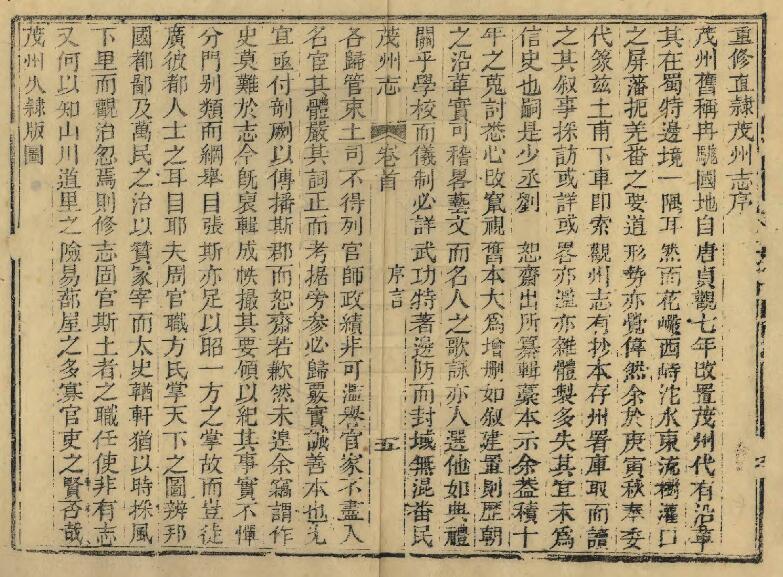 重修直隸茂州志序
茂州舊稱冉駹國地自唐貞觀七年改置茂州代有沿革
其在蜀特邊境一隅耳然而花巖西峙沱水東流樹灌口
之屏藩扼羌番之要道形勢亦覺偉然余於庚寅秋奉委
代篆茲土甫下車即索觀州志有抄本存州署庫取而讀
之其叙事採訪或詳或畧亦濫亦雜體製多失其宜未爲
信史也嗣是少丞劉　恕齋出所纂輯藁本示余葢積十
年之蒐討悉心改竄視舊本大爲增删如叙建置則歷朝
之沿革實可稽畧藝文而名人之歌詠亦入選他如典禮
關乎學校而儀制必詳武功特著邊防而封域無混番民
茂州志　卷首　序言　五
各歸管束土司不得列官師政績非可濫譽官家不盡入
名宦其體嚴其詞正而考据旁参必歸覈實誠善本也尢
宜亟付剞劂以傳播斯郡而恕齋若歉然未遑余竊謂作
史莫難於志今旣裒輯成帙撮其要領以紀其事實不憚
分門别類而綱舉目張斯亦足以昭一方之掌故而豈徒
廣彼都人士之耳目耶夫周官職方氏掌天下之圖辨邦
國都鄙及萬民之治以贊冢宰而太史輶軒猶以時採風
下里而觀治忽焉則修志固官斯土者之職任使非有志
又何以知山川道里之險易蔀屋之多寡官吏之賢否哉
茂州久隸版圖